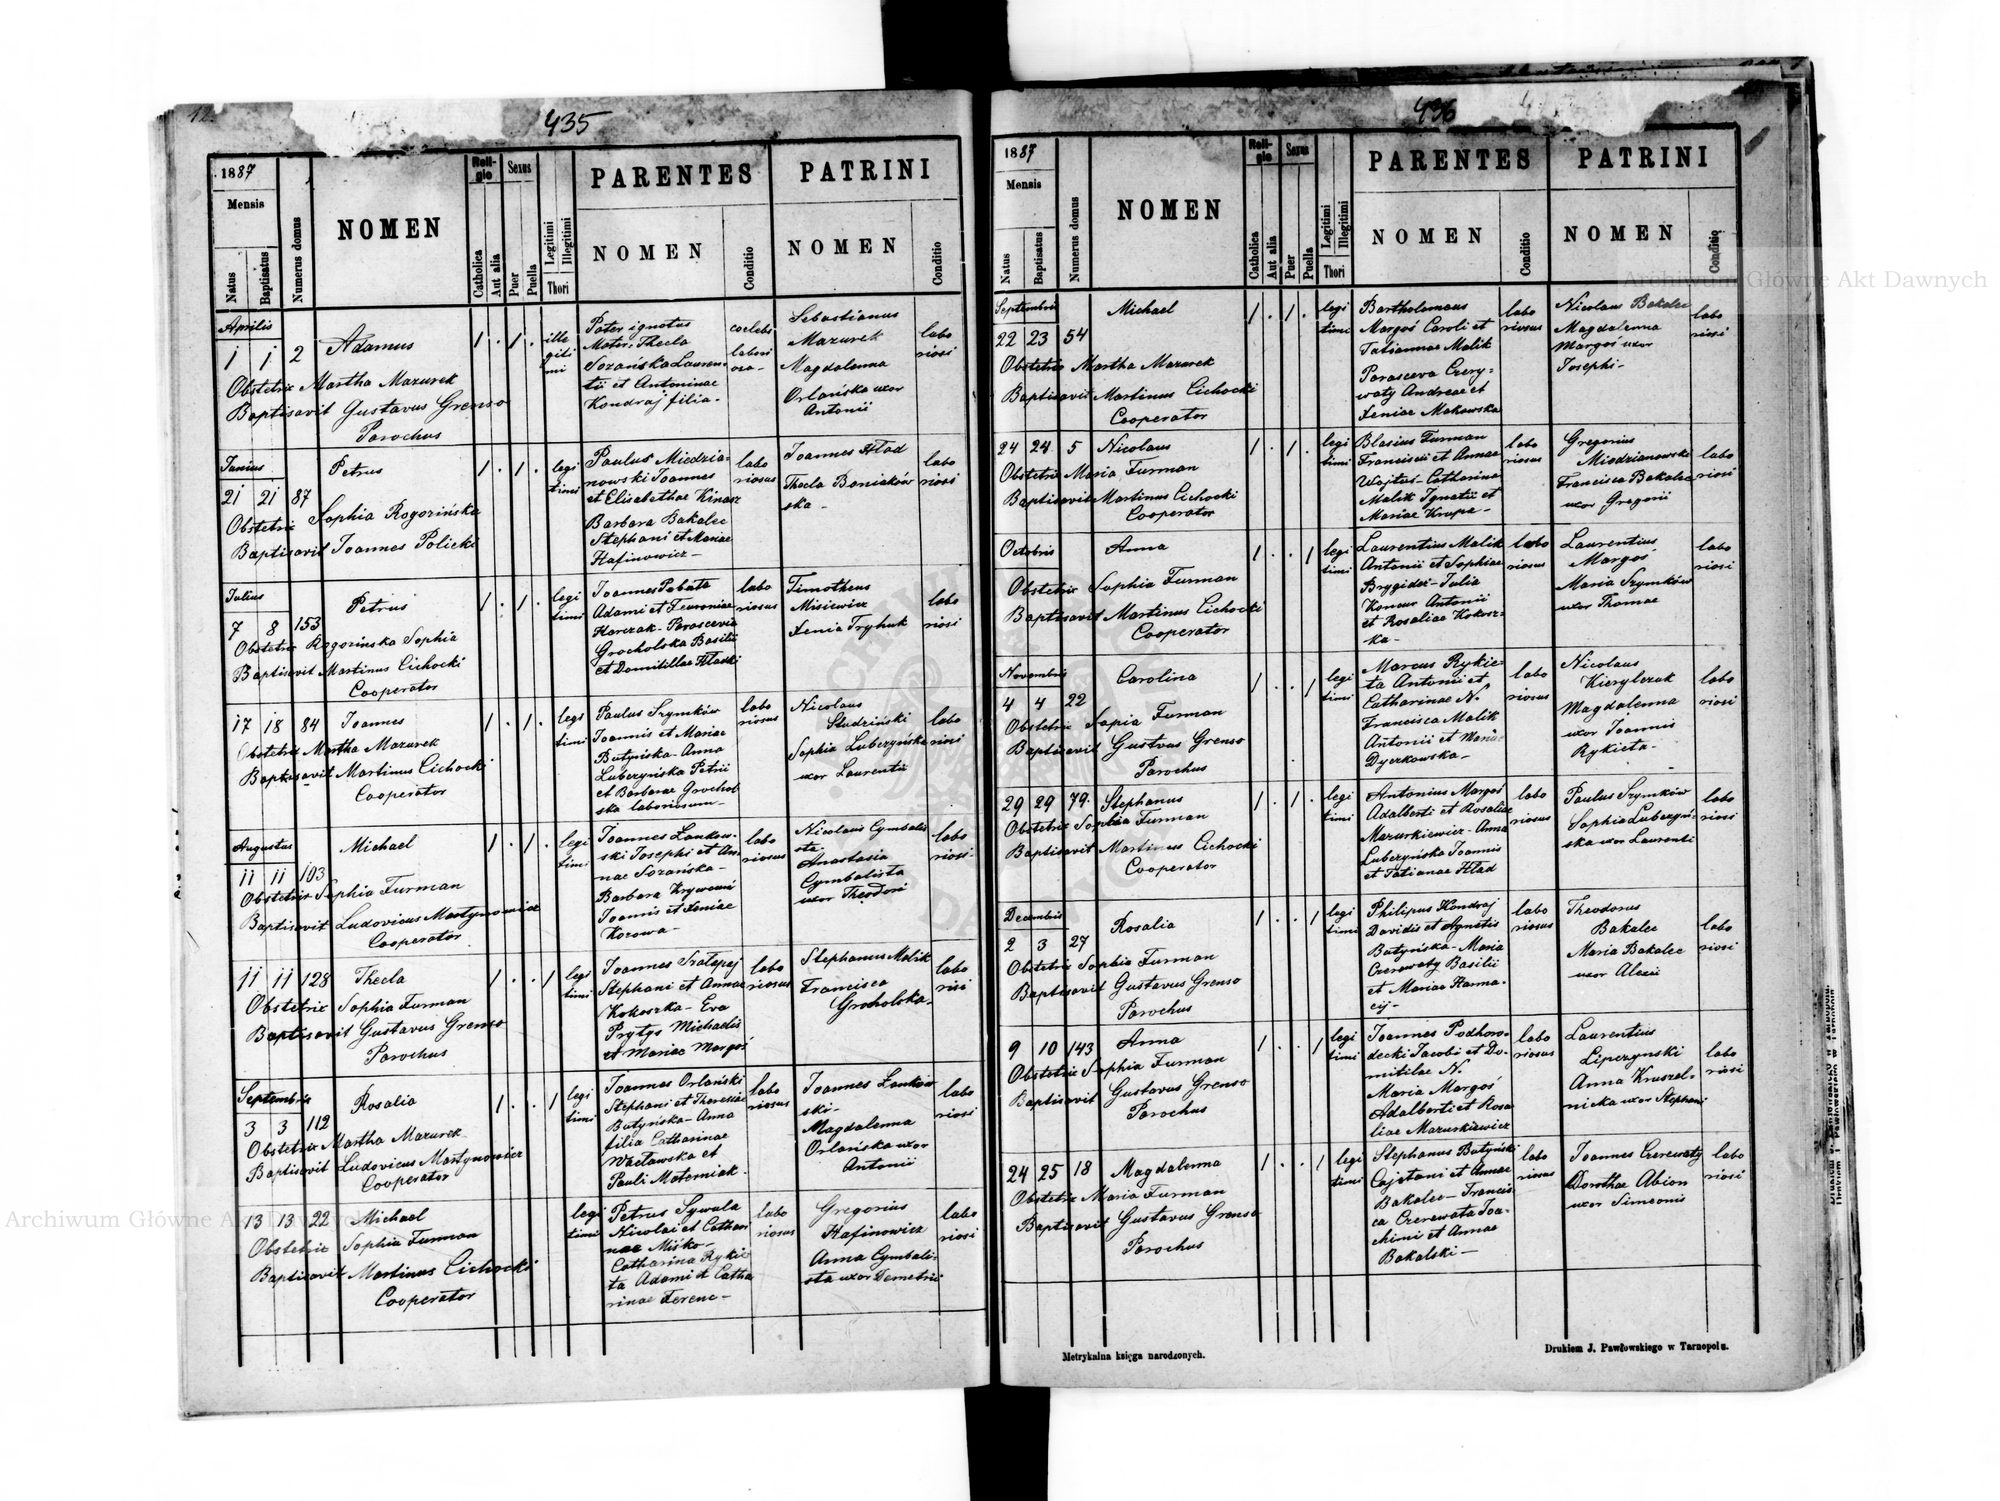 435
1887
Mensis
Natus
Baptisatus
Numerus domus
NOMEN
Reli-
gio
Catholica
Aut alia
Sexus
Puer
Puella
Legitimi
Illegitimi
Thori
PARENTES
NOMEN
Conditio
PATRINI
NOMEN
Conditio
Aprilis
1 1 2 Adamus
Obstetrix Martha Mazurek
Baptisavit Gustavus Grenso
Parochus
1 . 1 .
ille
giti
mi
Pater ignotus
Mater: Thecla
Sozańska Lauren-
tii et Antoninae
Kondraj filia.
coelebs
labori
osa-
Sebastianus
Mazurek
Magdalenna
Orlańska uxor
Antonii
labo
riosi
Junius
21 21 87 Petrus
Obstetrix Sophia Rogozińska
Baptisavit Joannes Policki
1 . 1 .
legi
timi
Paulus Miedzia-
nowski Joannes
et Elisabethae Kinasz
Barbara Bakalec
Stephani et Mariae
Hafinowicz-
labo
riosus
Joannes Hlad
Thecla Boniaków
ska-
labo
riosi
Julius
7 8 153 Petrus
Obstetrix Rogozinska Sophia
Baptisavit Martinus Cichocki
Cooperator
1 . 1 .
legi
timi
Joannes Pabata
Adami et Feuroniae
Harczak- Parascevia
Grocholska Basilii
et Domitillae Hladki
labo
riosus
Timotheus
Misiewicz
Xenia Tryhuk
labo
riosi
17 18 84 Joannes
Obstetrix Martha Mazurek
Baptisavit Martinus Cichocki
Cooperator
1 . 1 .
legi
timi
Paulus Szymków
Joannis et Mariae
Butyńska- Anna
Lubczyńska Petrii
et Barbarae Grochol
ska laboriosum-
labo
riosus
Nicolaus
Studziński
Sophia Lubczyńska
uxor Laurentii
labo
riosi
Augustus
11 11 103 Michael
Obstetrix Sophia Furman
Baptisavit Ludovicus Martynowicz
Cooperator
1 . 1 .
legi
timi
Joannes Lankow-
ski Josephi et An-
nae Sozańska-
Barbara
Joannis et Xeniae
Korowa-
labo
riosus
Nicolaus Cymbalis
sta
Anastasia
Cymbalista
uxor Theodori
labo
riosi-
11 11 128 Thecla
Obstetrix Sophia Furman
Baptisavit Gustavus Grenso
Parochus
1 . . 1
legi
timi
Joannes Sratepaj
Stephani et Annae
Kokoszka- Eva
Prytys Michaelis
et Mariae Margoś
labo
riosus
Stephanus Malik
Francisca
Groholska-
labo
risi
Septembris
3 3 112 Rosalia
Obstetrix Martha Mazurek
Baptisavit Ludovicus Martynowicz
Cooperator
1 . . 1
legi
timi
Joannes Orlański
Stephani et Theresiae
Butyńska- Anna
filia Catharinae
Wacławska et
Pauli Moterniak.
labo
riosus
Joannes Lanków
ski-
Magdalenna
Orlańska uxor
Antonii
labo
riosi
13 13 22 Michael
Obstetrix Sophia Furman
Baptisavit Martinus Cichocki
Cooperator
legi
timi
Petrus Sywala
Nicolai et Cathari
nae Miśko-
Catharina Rykie
ta Adami et Catha
rinae Ferenc-
labo
riosus
Gregorius
Hafinowicz
Anna Cymbali-
sta uxor Demetrii
labo
riosi
436
1887
Mensis
Natus
Baptisatus
Numerus domus
NOMEN
Reli-
gio
Catholica
Aut alia
Sexus
Puer
Puella
Legitimi
Illegitimi
Thori
PARENTES
NOMEN
Conditio
PATRINI
NOMEN
Conditio
Septembris
22 23 54 Michael
Obstetrix Martha Mazurek
Baptisavit Martinus Cichocki
Cooperator
1 . 1 .
legi
timi
Bartholomaeus
Margoś Caroli et
Tatiannae Malik
Parasceva Czery-
waty Andreae et
Xeniae Makowska
labo
riosus
Nicolaus Bakalec
Magdalenna
Margoś uxor
Josephi-
labo
riosi
24 24 5 Nicolaus
Obstetrix Maria Furman
Baptisavit Martinus Cichocki
Cooperator
1 . 1 .
legi
timi
Blasius Furman
Francisci et Annae
Wojtus- Catharina
Malik Ignatii et
Mariae Krupa-
labo
riosus
Gregorius
Miedzianowski
Francisca Bakalec
uxor Gregorii
labo
riosi
Octobris
Anna
Obstetrix Sophia Furman
Baptisavit Martinus Cichocki
Cooperator
1 . . 1
legi
timi
Laurentius Malik
Antonii et Sophiae
Brygider- Julia
Antonii
et Rosaliae Kokosz-
ka-
labo
riosus
Laurentius
Margoś
Maria Szymków
uxor Thomae
labo
riosi
Novembris
4 4 22 Carolina
Obstetrix Sopia Furman
Baptisavit Gustvus Grenso
Parochus
1 . . 1
legi
timi
Marcus Rykie-
ta Antonii et
Catharinae N.
Francisca Malik
Antonii et Maria-
Dyczkowska-
labo
riosus
Nicolaus
Kierylczuk
Magdalenna
uxor Joannis
Rykieta-
labo
riosi
29 29 79. Stephanus
Obstetrix Sophia Furman
Baptisavit Martinus Cichocki
Cooperator
1 . 1 .
legi
timi
Antonius Margoś
Adalberti et Rosaliae
Mazurkiewicz- Anna
Lubczyńska Joannis
et Tatianae Hlad
labo
riosus
Paulus Szymków
Sophia Lubczyń-
ska uxor Laurenti
labo
riosi
Decembris
2 3 27 Rosalia
Obstetrix Sophia Furman
Baptisavit Gustavus Grenso
Parochus
1 . . 1
legi
timi
Philipus Kondraj
Davidis et Agnetis
Butyńska- Maria
Czerewaty Basilii
et Mariae Harma-
cij-
labo
riosus
Theodorus
Bakalec
Maria Bakalec
uxor Alexii
labo
riosi
9 10 143 Anna
Obstetrix Sophia Furman
Baptisavit Gustavus Grenso
Parochus
1 . . 1
legi
timi
Joannes Podhoro-
decki Jacobi et Do-
mitilae N.
Maria Margoś
Adalberti et Rosa
liae Mazurkiewicz
labo
riosus
Laurentius
Lipczynski
Anna Kruszel-
nicka uxor Stephani
labo
riosi
24 25 18 Magdalenna
Obstetrix Maria Furman
Baptisavit Gustavus Grenso
Parochus
1 . . 1
legi
timi
Stephanus Butyński
Cajetani et Annae
Bakalec- Francis
ca Czerewata Joa-
chimi et Annae
Bakalski-
labo
riosus
Joannes Czerewaty
Dorothae Abion
uxor Simeonis
labo
riosi
Metrykalna księga narodzonych.
Drukiem J. Pawłowskiego w Tarnopolu.
Archiwum Główne Akt Dawnych
Archiwum Główne Akt Dawnych